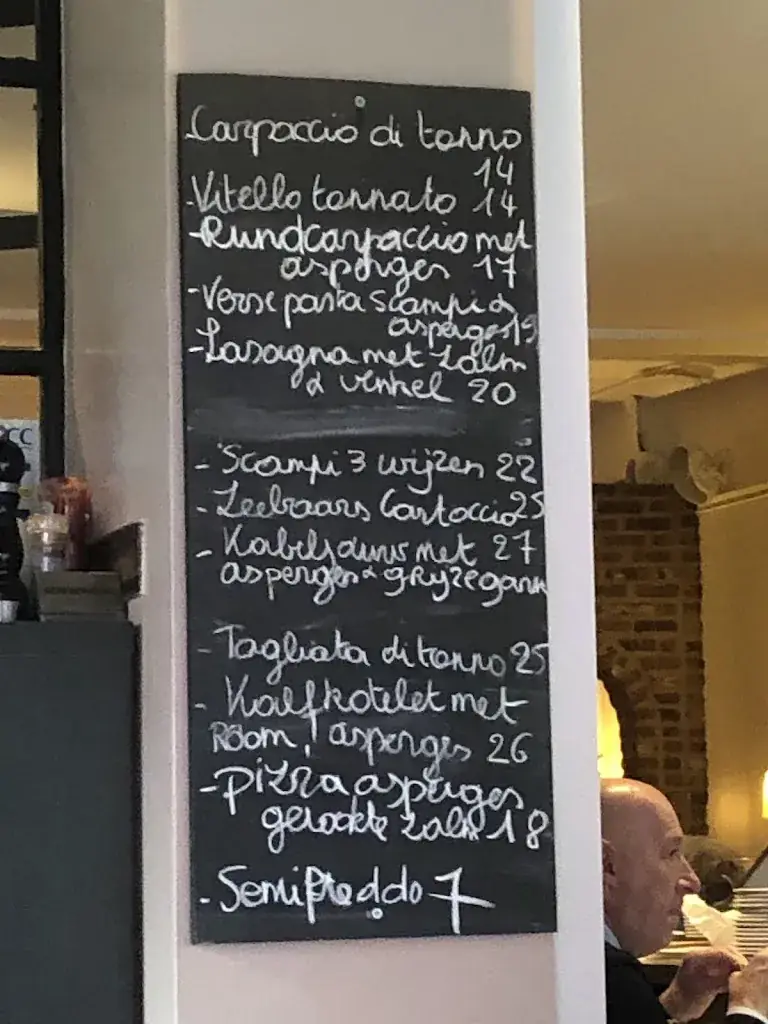 Carpaccio di tonno
14
-Vitello tonnato 14
-Rundcarpaccio met
asperges 17
-Verse pasta scampi &
asperges 19
-Lasagna met zalm
& venkel 20
- Scampi 3 wijzen 22
- Zeebaars Cartoccio 25
- Kabeljauw met 27
asperges & grijze garn
- Tagliata di tonno 25
- Kalfkotelet met
Room, asperges 26
-pizza asperges
gerookte zalm 18
- Semifreddo 7